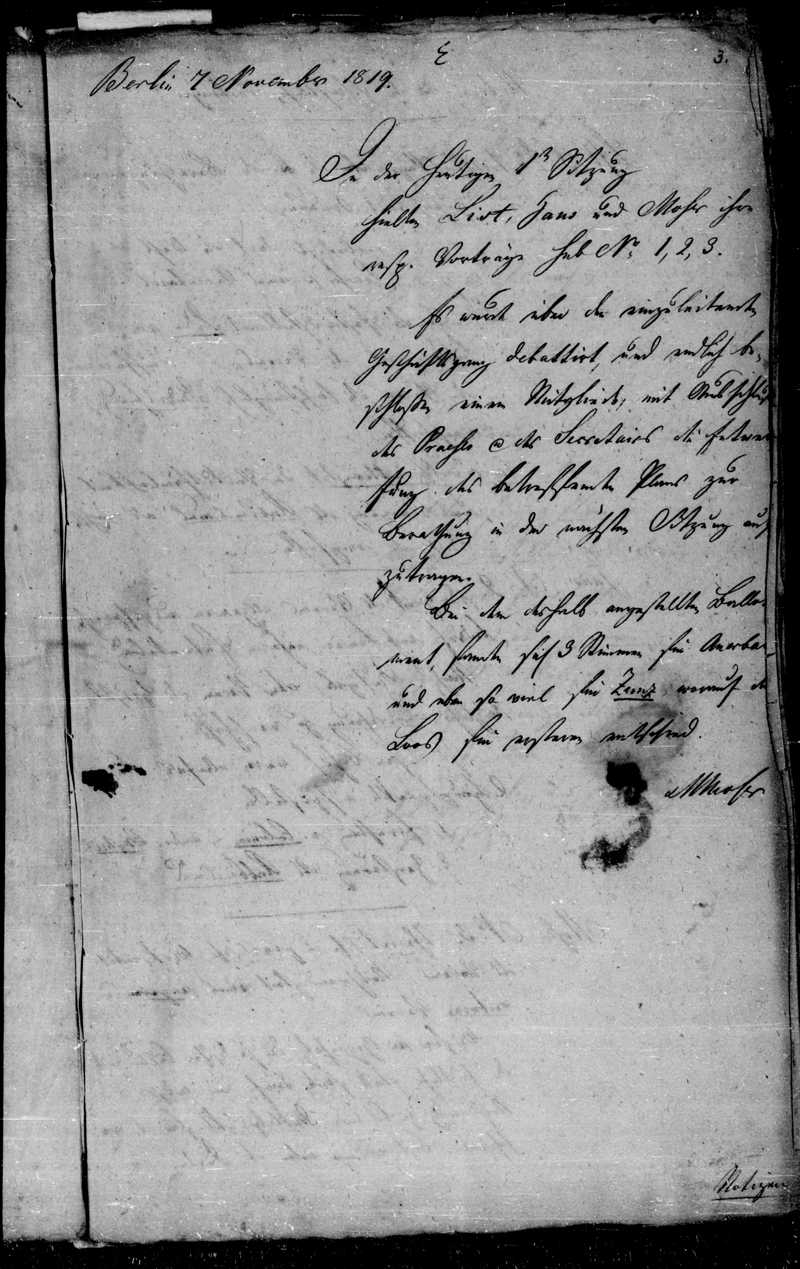 3.
Berlin 7 November 1819.
In der heutigen 1n Sitzung
hielten List, Gans und Moser ihre
resp. Vorträge sub No 1, 2, 3.
Es wurde über den einzuleitenden
Geschäftsgang debattirt, und endlich be-
schlossen einem Mitgliede, mit Ausschluß
des Praeses & des Secretairs die Entwer-
fung des betreffenden Plans zur
Berathung in der nächsten Sitzung auf
zutragen.
Bei dem deshalb angestellten Ballo-
ment, fanden sich 3 Stimmen für Auerbach
und eben so viel für Zunz worauf das
Loos für ersteren entschied.
MMoser
Notizen